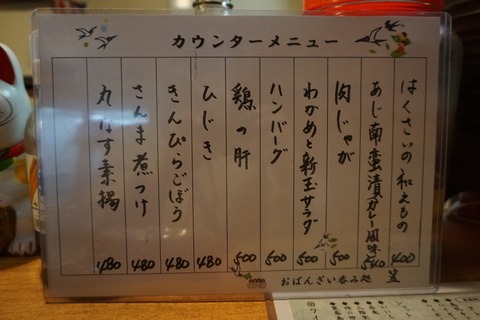 カウンターメニュー
はくさいの和えもの 400
あじ南蛮漬カレー風味 540
肉じゃが 500
わかめと新玉サラダ 500
ハンバーグ 500
鶏の肝 500
ひじき 480
きんぴらごぼう 480
さんま煮つけ 480
丸なす素揚 480
おばんざい呑み処 笠